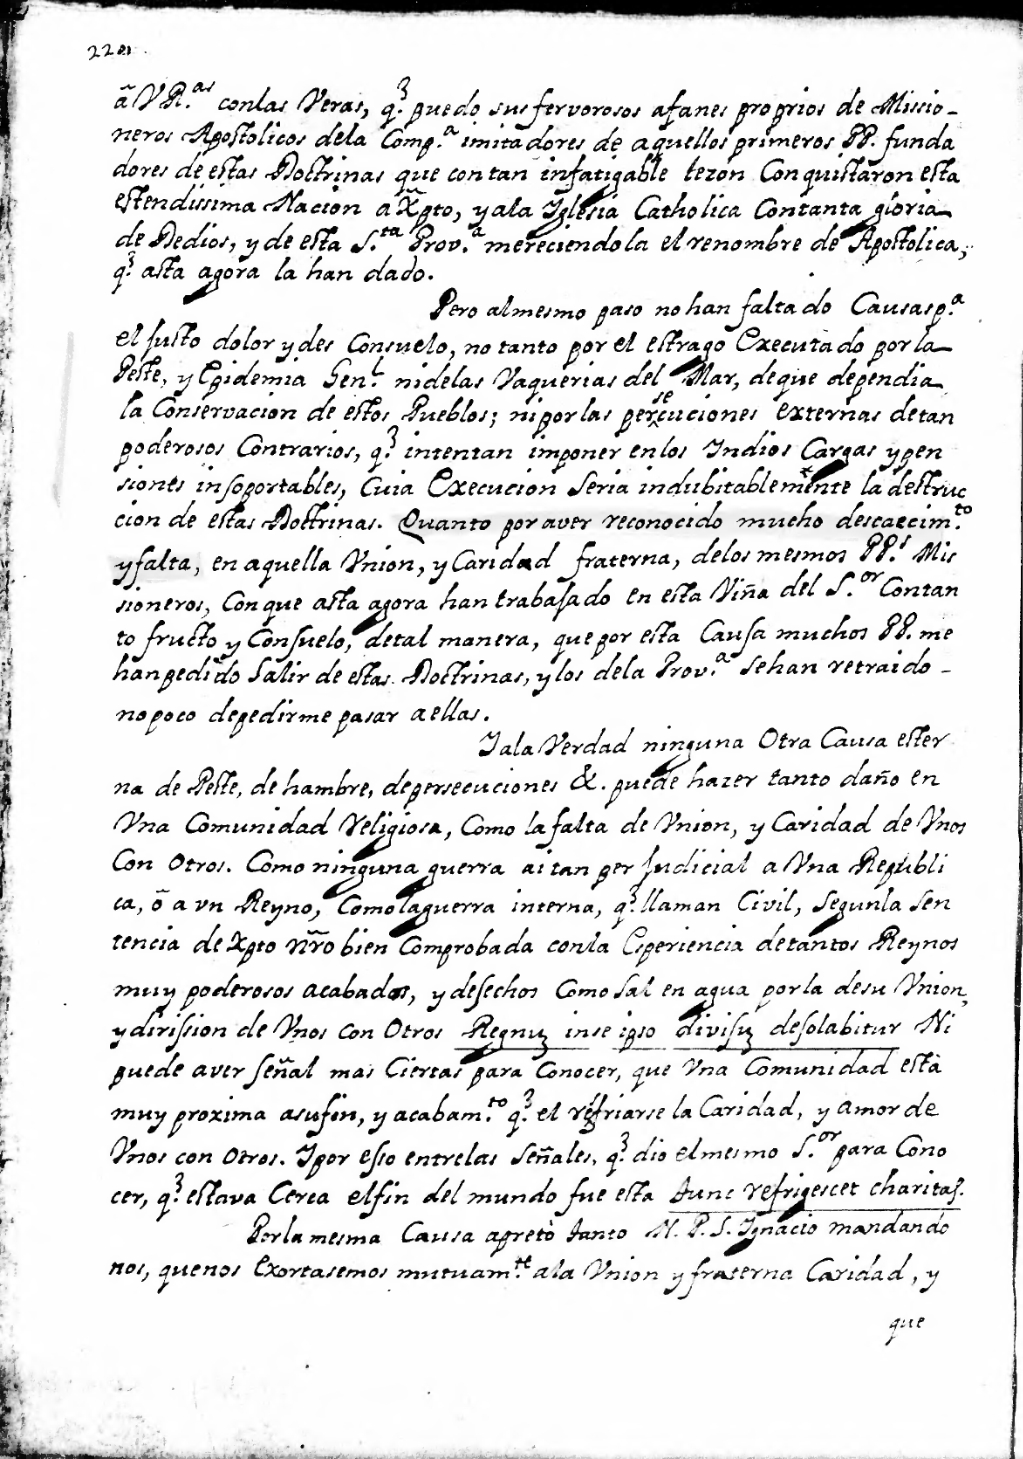 ã VR.as conlas Veras, q.e puedo sus fervorosos afanes proprios de Missio-
neros Apostolicos dela Comp.a imitadores de aquellos primeros PP. funda
dores de estas Doctrinas que con tan infatigable tezon Conquistaron esta
estendissima Nacion a Xpto, y ala Iglesia Catholica Contanta gloria
de Dedios, y de esta S.ta Prov.a mereciendola el renombre de Apostolica,
q.e asta agora la han dado.
Pero almesmo paso no han faltado Causas p.a
el justo dolor y des Consuelo, no tanto por el estrago Executado por la
Peste, y Epidemia Gen.l nidelas Vaquerias del Mar, deque dependia
la Conservacion de estos Pueblos; niporlas persecuciones externas detan
poderosos Contrarios, q.e intentan imponer enlos Indios Cargas y pen
siones insoportables, Cuia Execucion seria indubitablemente la destruc
cion de estas Doctrinas. Quanto por aver reconocido mucho descaecim.to
y falta, en aquella Vnion, y Caridad fraterna, delos mesmos PP.s Mis
sioneros, Conque asta agora han trabajado en esta Viña del S.or Contan
to fructo y Consuelo, detal manera, que por esta Causa muchos PP. me
hanpedido Salir de estas Doctrinas, y los dela Prov.a sehan retraido -
nopoco depedirme pasar aellas.
I ala Verdad ninguna Otra Causa exter
na de Peste, de hambre, depersecuciones &. puede hazer tanto daño en
Vna Comunidad Religiosa, Como la falta de Vnion, y Caridad de Vnos
Con Otros. Como ninguna guerra ai tan perjudicial a Vna Republi
ca, ō a vn Reyno, Como laguerra interna, q.e llaman Civil, Segunla Sen
tencia de Xpto nr̃o bien Comprobada conla Esperiencia detantos Reynos
muy poderosos acabados, y desechos Como Sal en agua porla desu Vnion,
y divission de Vnos con Otros Regnuʒ inse ipso divisuʒ desolabitur Ni
puede aver señal mas Ciertas para Conocer, que Vna Comunidad està
muy proxima asufin, y acabam.to q.e el resfriarse la Caridad, y amor de
Vnos con otros. I por esso entrelas señales, q.e dio elmesmo S.or para Cono
cer, q.e estava Cerca elfin del mundo fue esta tunc refrigescet charitas.
Porla mesma Causa apretò tanto N. P. S. Ignacio mandando
nos, quenos Exortasemos mutuam.te ala Vnion y fraterna Caridad, y
que